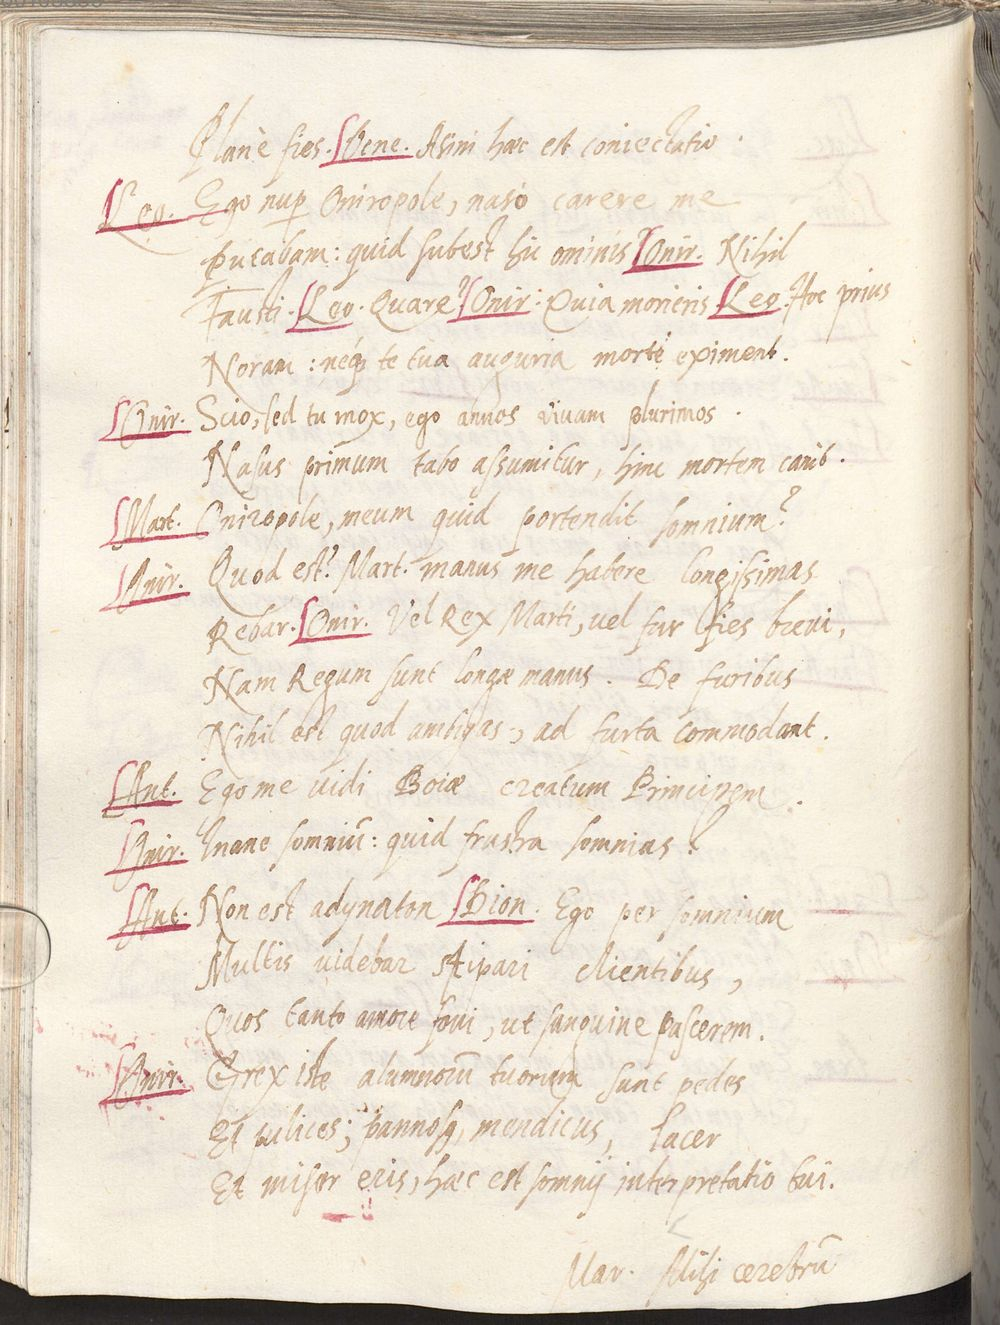 Planè fies. Bene. Asini haec est coniectatio.
Leo. Ego nup Oniropole, naso carere me
Putabam: quid subest hic ominis? Onir. Nihil
Fausti. Leo. Quare? Onir. Quia morieris Leo. Hoc prius
Noram: neq te tua auguria morti eximent.
Onir. Scio, sed tu mox, ego annos vivam plurimos.
Nasus primum tabo assumitur, hinc mortem
Mart. Oniropole, meum quid portendit somnium?
Onir. Quod est? Mart. manus me habere longissimas
Rebar. Onir. Vel Rex Marti, vel fur fies brevi,
Nam Regum sunt longae manus. De furibus
Nihil est quod ambigas, ad furta commodant.
Ant. Ego me vidi Boiae creatum Principem.
Onir. Inane somniū: quid frustra somnias?
Ant. Non est adynaton Bion. Ego per somnium
Multis videbar stipari clientibus,
Quos tanto amore fovi, ut sanguine pascerem.
Onir. Grex iste alumnorū tuorum sunt pedes
Et pulices; pannosq, mendicus, lacer
Et miser eris, haec est somnij interpretatio tui.
Mar. Mihi cerebrū